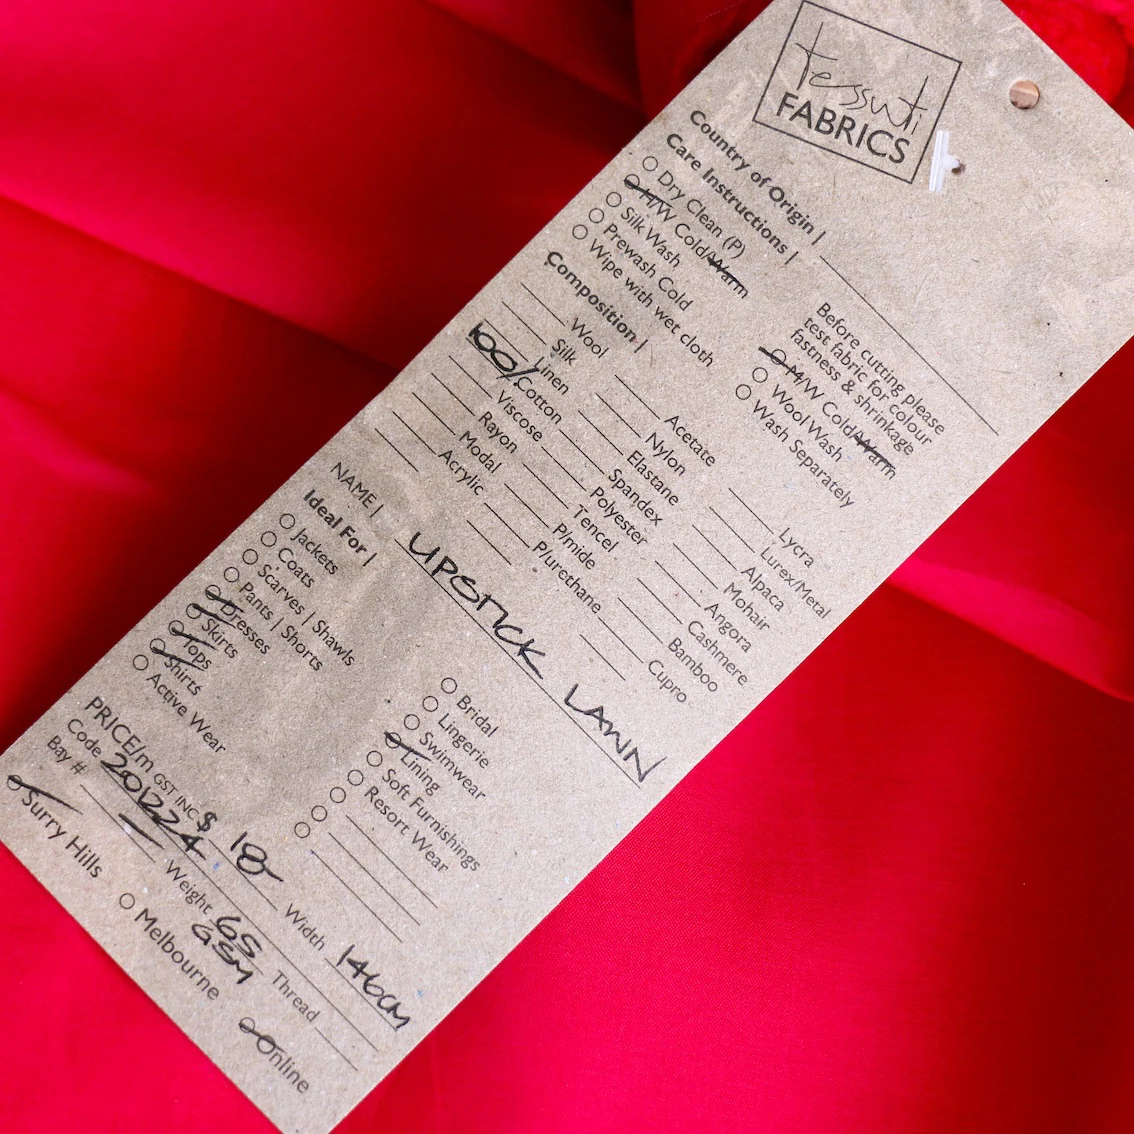 tessuti
FABRICS
Country of Origin |
Care Instructions |
Dry Clean (P)
H/W Cold/Warm
Silk Wash
Prewash Cold
Wipe with wet cloth
Before cutting please
test fabric for colour
fastness & shrinkage
M/W Cold/Warm
Wool Wash
Wash Separately
Composition |
Wool
Silk
Linen
100% Cotton
Viscose
Rayon
Modal
Acrylic
Acetate
Nylon
Elastane
Spandex
Polyester
Tencel
P/mide
P/urethane
Lycra
Lurex/Metal
Alpaca
Mohair
Angora
Cashmere
Bamboo
Cupro
NAME | LIPSTICK LAWN
Ideal For |
Jackets
Coats
Scarves | Shawls
Pants | Shorts
Dresses
Skirts
Tops
Shirts
Active Wear
Bridal
Lingerie
Swimwear
Lining
Soft Furnishings
Resort Wear
PRICE/m GST INC $ 18-
Code 201224 Width 146CM
Bay # Weight 65 GSM Thread
Surry Hills Melbourne Online